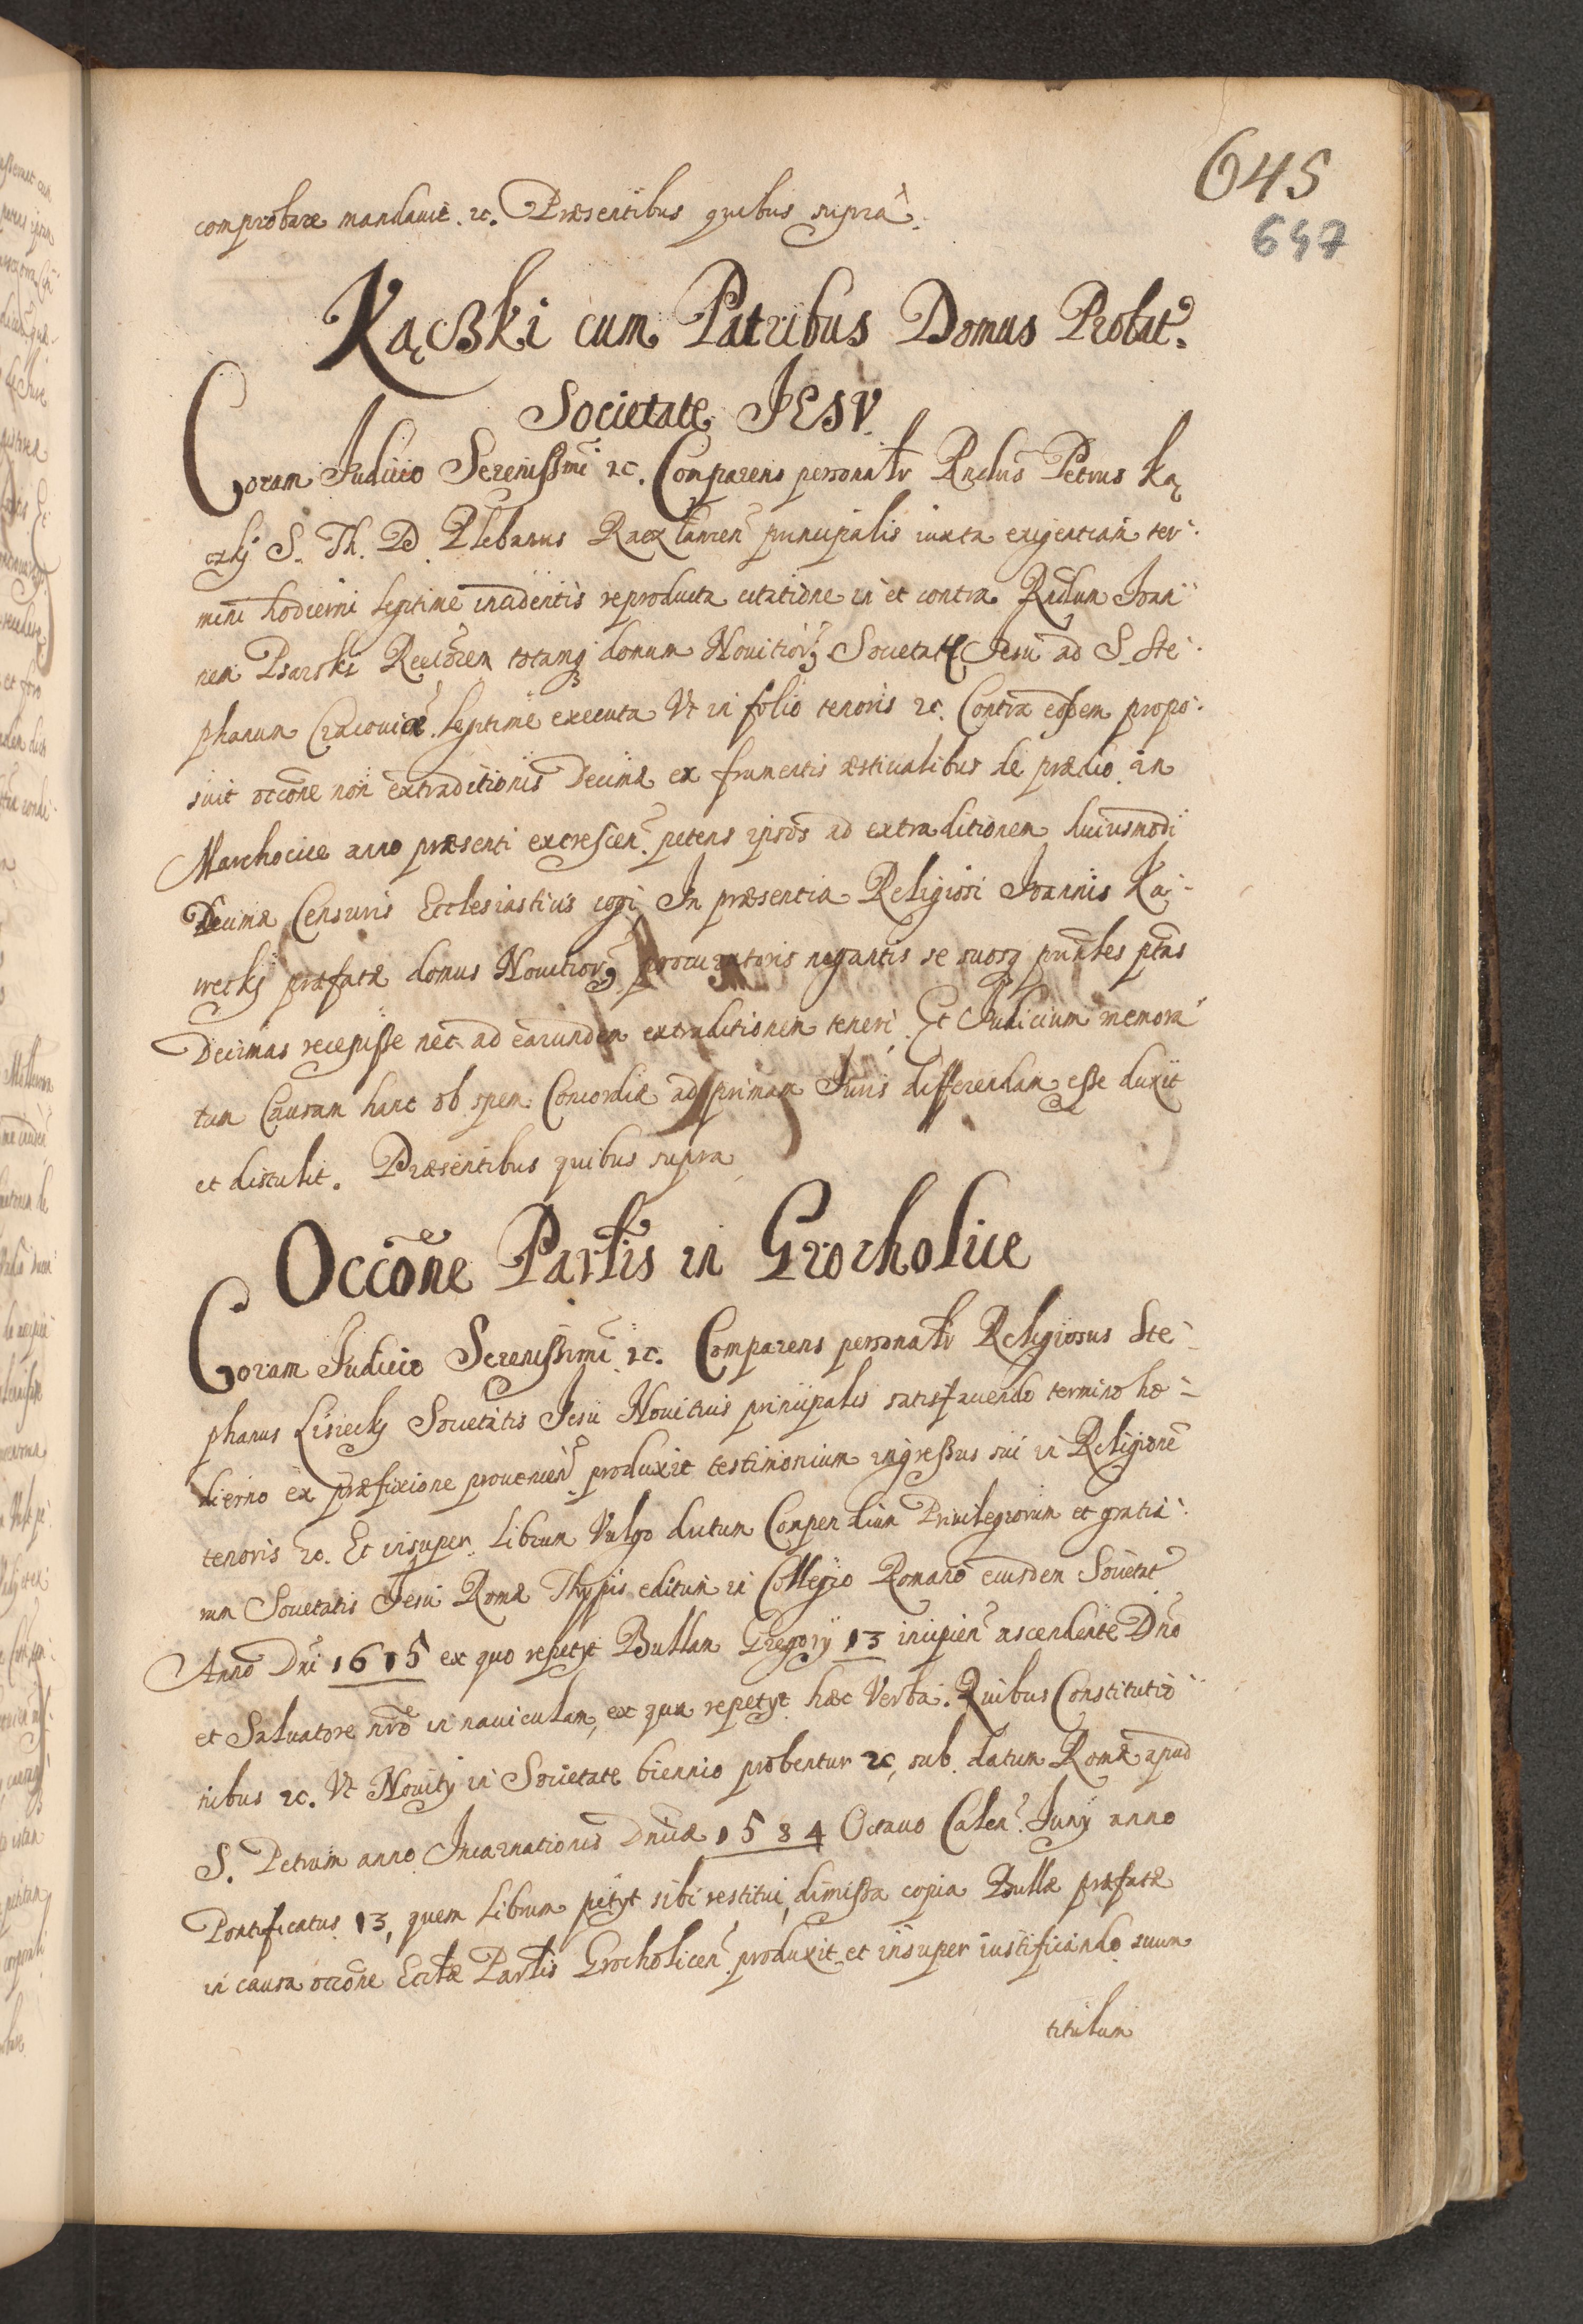 645
647
comprobare mandauit. ꝛc. Præsentibus quibus supra.
Kączki cum Patribus Domus Probat.
Societate JESV.
Coram Judicio Serenissmi ꝛc. Comparens personalr Rndus Petrus Ką
czkij S. Th. D. Plebanus principalis iuxta exigentiam ter-
mini hodierni legitime incidentis reproducta citatione in et contra Rndum Ioan-
nem Psarski Rectorem totamq domum Nouitiorz Societatis Jesu ad S. Ste-
phanum Cracouiæ legitime executa Vt in folio tenoris ꝛc. Contra eosdem propo-
suit occōne non extraditionis Decimæ ex frumentis æstiualibus de prædio in
Marchocice anno præsenti excrescen. petens ipsos ad extraditionem huiusmodi
Decimæ Censuris Ecclesiasticis cogi In præsentia Religiosi Ioannis Ka-
weckij præfatæ domus Nouitiorz procuratoris negantis se suosq prinles ptas
Decimas recepisse nec ad earundem extraditionem teneri. Et Judicium memora
tum Causam hanc ob spem Concordiæ ad primam Juris differendam esse duxit
et distulit. Præsentibus quibus supra
Occōne Partis in Grocholice
Coram Judicio Serenissimi ꝛc. Comparens personalr Religiosus Ste-
phanus Lisieckij Societatis Jesu Nouitius principalis satisfaciendo termino ho-
dierno ex præfixione prouenien. produxit testimonium ingressus sui in Religionē
tenoris ꝛc. Et insuper Librum Vulgo dictum Compendium Priuilegiorum et gratia-
rum Societatis Jesu Romæ Thypis editum in Collegio Romano eiusdem Societat
Anno Dni 1615 ex quo repetyt Bullam Gregorÿ 13 incipien ascendente Dno
et Saluatore nro in nauiculam, ex qua repetyt hæc Verba. Quibus Constitutio-
nibus ꝛc. Vt Nouitÿ in Societate biennio probentur ꝛc, sub datum Romæ apud
S. Petrum anno Incarnationis Dnicæ 1584 Octauo Calen. Junÿ anno
Pontificatus 13, quem Librum petyt sibi restitui, dimissa copia Bullæ præfatæ
in causa occōne Ecclæ Partis Grocholicen. produxit et insuper iustificando suum
titulum